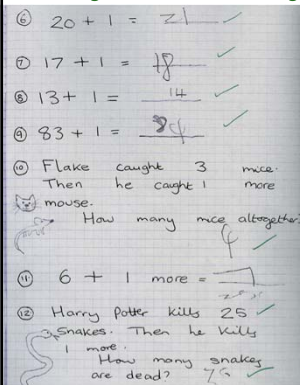 ⑥ 20 + 1 = 21
⑦ 17 + 1 = 18
⑧ 13 + 1 = 14
⑨ 83 + 1 = 84
⑩ Flake caught 3 mice.
Then he caught 1 more
mouse.
How many mice altogether?
4
⑪ 6 + 1 more = 7
⑫ Harry Potter kills 25
snakes. Then he kills
1 more.
How many snakes
are dead?